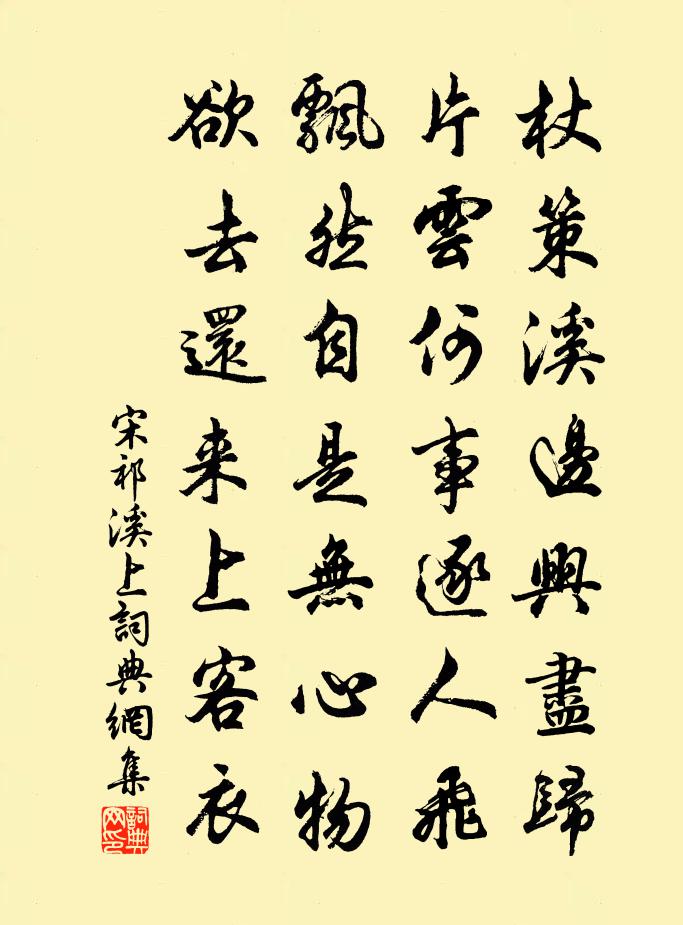 杖策溪邊興盡歸
片雲何事逐人飛
飄然自是無心物
欲去還来上客衣
宋祁溪上詞典網集
詞典網印